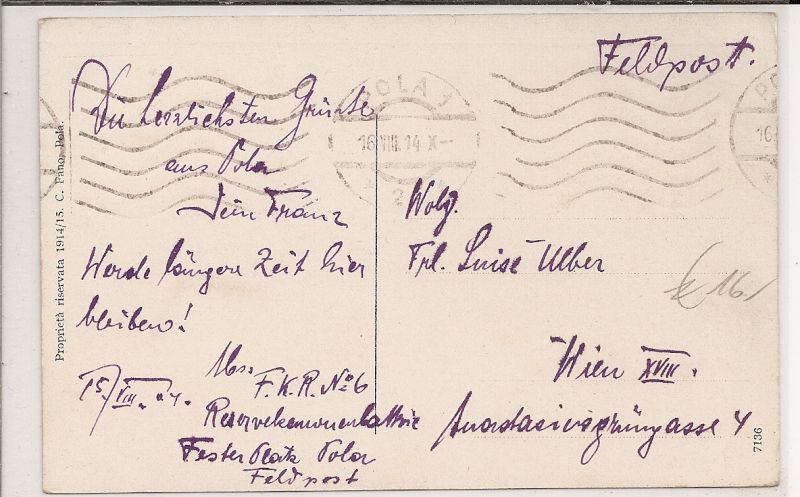 Feldpost.
Die herzlichsten Grüsse
aus Pola
Dein Franz
Werde längere Zeit hier
bleiben!
15./VIII.
Abs:
F.K.R. No 6
Reservekanonenbatterie
Fester Platz Pola
Feldpost
POLA 1
16 VIII. 14 X–
* 2
PO
16
*
Wolg.
Frl. Luise Ulber
Wien XVIII.
Anastasius grüngasse 4
Proprietà riservata 1914/15. C. Fano, Pola.
7136